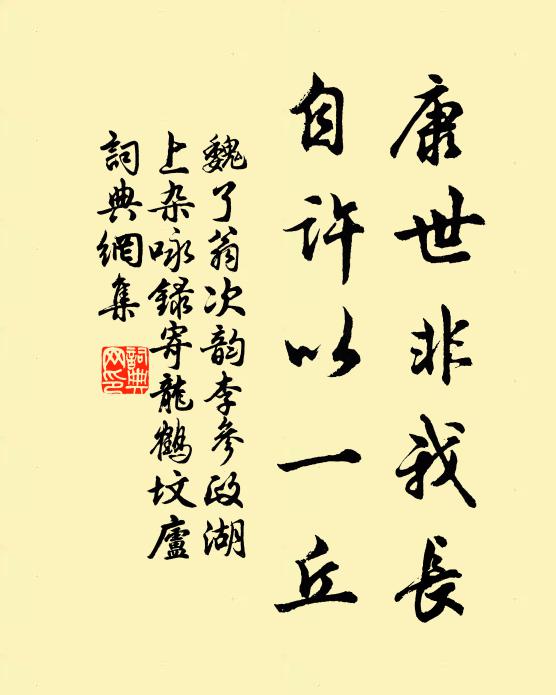 康世非我長
自許以一丘
魏了翁次韵李參政湖
上杂咏録寄龍鶴坟廬
詞典網集
詞典
网印